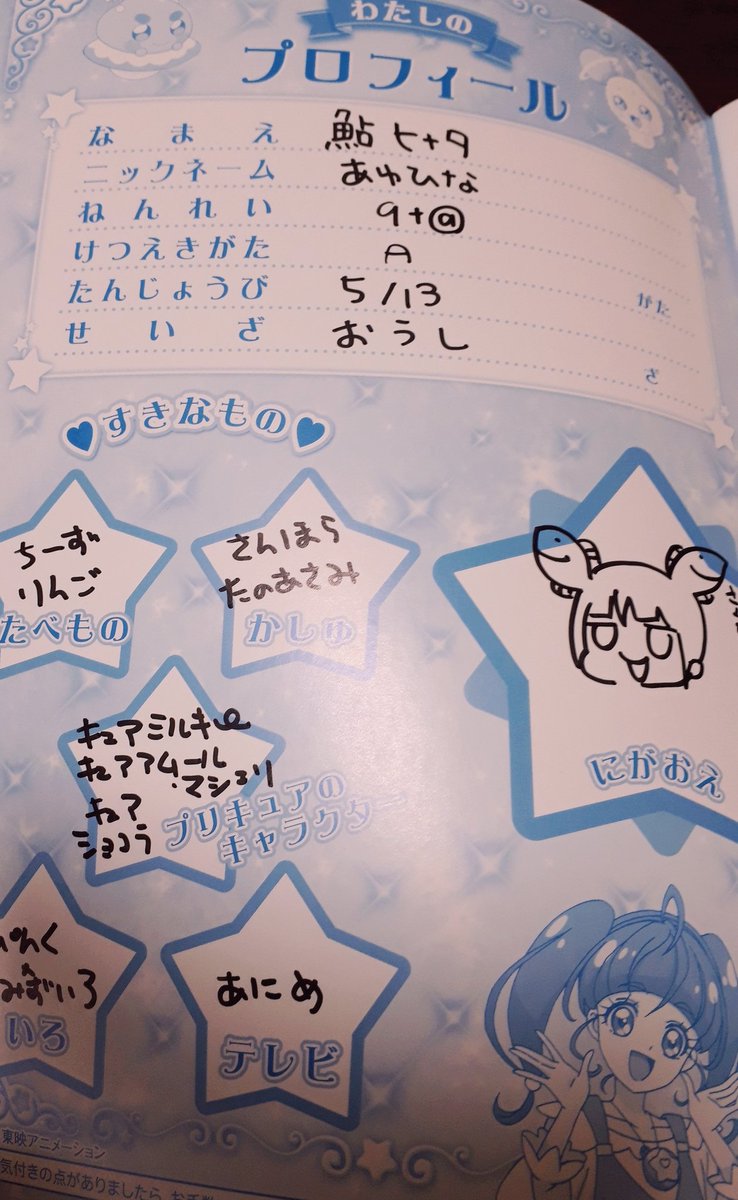 わたしの
プロフィール
なまえ 鮎ヒナタ
ニックネーム あゆひな
ねんれい 9+@
けつえきがた A がた
たんじょうび 5/13
せいざ おうし ざ
すきなもの
ちーず
りんご
たべもの
さんほら
たのあさみ
かしゅ
にがおえ
キュアミルキー
キュアアムール
・マシェリ
キュア
ショコラ
プリキュアの
キャラクター
ぱんく
みずいろ
いろ
あにめ
テレビ
東映アニメーション
気付きの点がありましたら、お手数